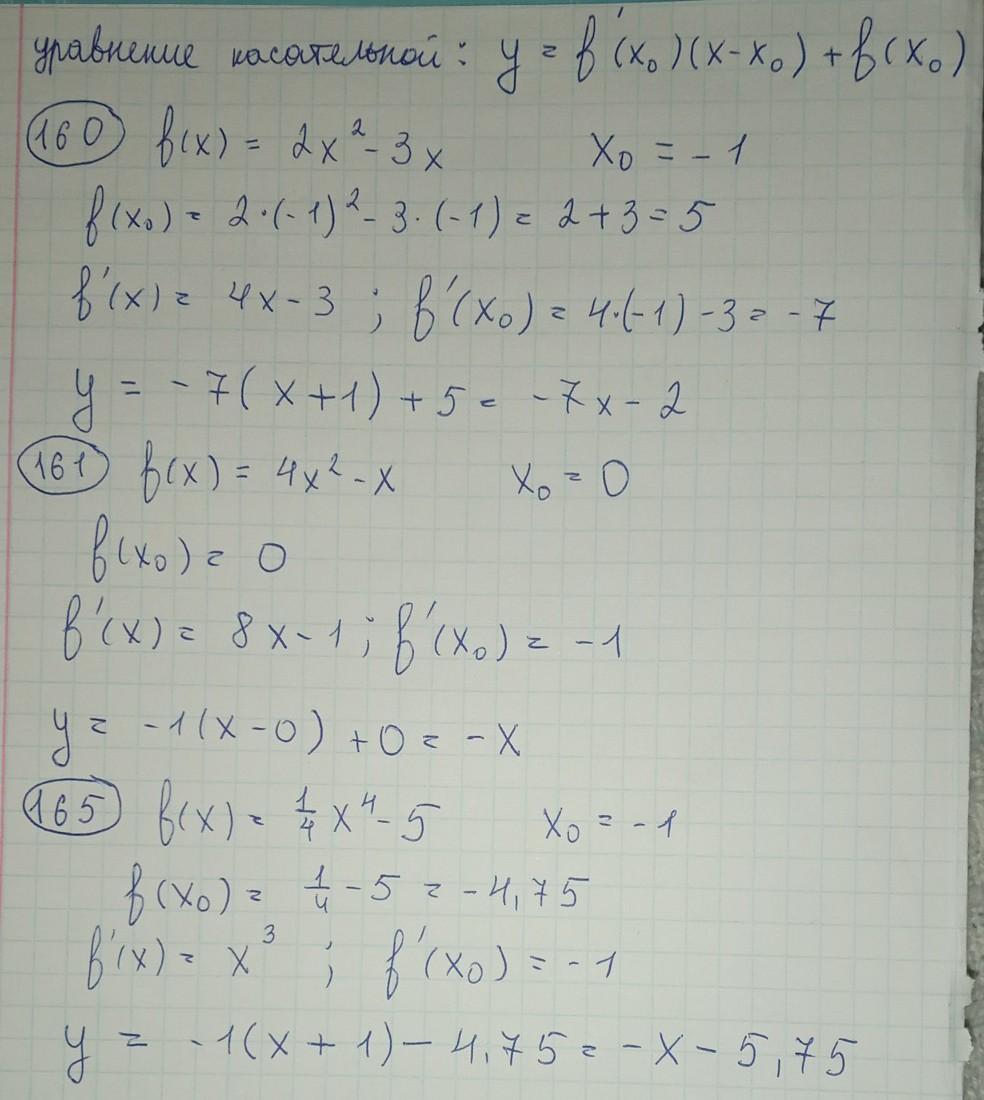 уравнение касательной: y = f'(x₀)(x-x₀) + f(x₀)
160 f(x) = 2x² - 3x x₀ = -1
f(x₀) = 2·(-1)² - 3·(-1) = 2+3=5
f'(x) = 4x-3 ; f'(x₀) = 4·(-1) -3 = -7
y = -7(x+1) + 5 = -7x - 2
161 f(x) = 4x² - x x₀ = 0
f(x₀) = 0
f'(x) = 8x-1 ; f'(x₀) = -1
y = -1(x-0) + 0 = -x
165 f(x) = 1/4 x⁴ - 5 x₀ = -1
f(x₀) = 1/4 - 5 = -4,75
f'(x) = x³ ; f'(x₀) = -1
y = -1(x+1) - 4,75 = -x - 5,75